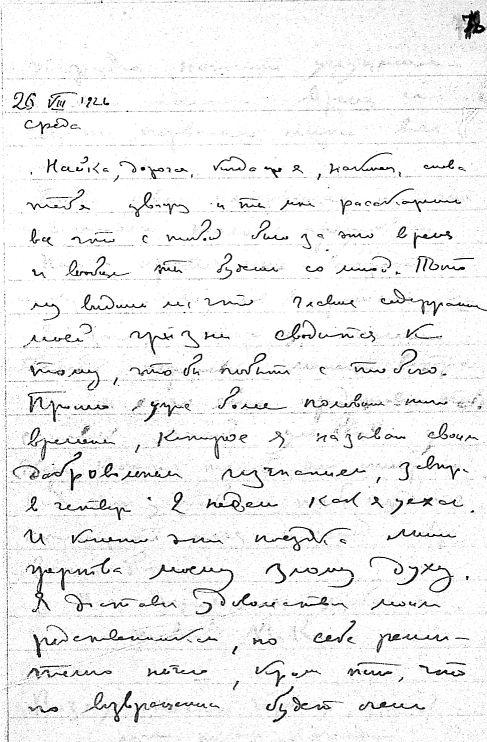 26 VIII 1926
среда
Найка, дорогая, когда же я, наконец, снова
тебя увижу и ты мне расскажешь
все что с тобой было за это время
и вообще ты будешь со мной. Пото
му видишь ли что главное содержание
моей жизни сводится к
тому, чтобы побыть с тобою.
Прошло уже более половины
времени, которое я называю своим
добровольным изгнанием, завтра
в четверг 2 недели как я уехал.
И эта поездка лишь
жертва моему злому духу.
Я доставил удовольствие моим
родственникам, но себе реши-
тельно ничего, кроме того, что
по возвращении будет очень